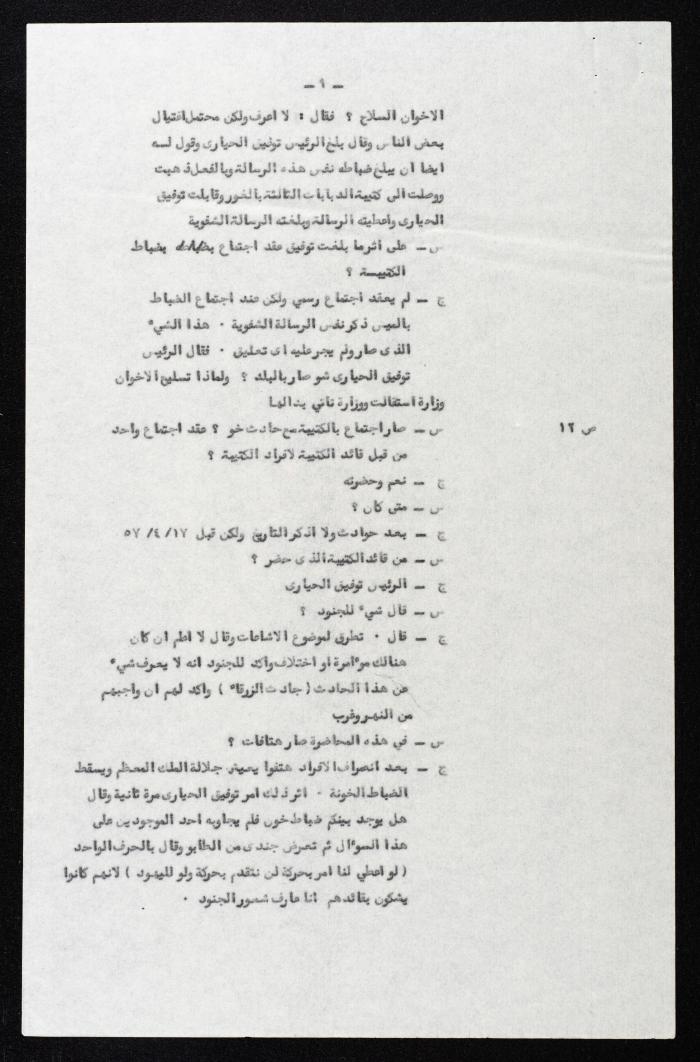 - ٩ -
الاخوان السلاح ؟ فقال : لا اعرف ولكن محتمل اغتيال
بعض الناس وقال بلغ الرئيس توفيق الحيارى وقول لسه
ايضا ان يبلغ ضباطه نفس هذه الرسالة وبالفعل ذهبت
ووصلت الى كتيبة الدبابات الثالثة بالغور وقابلت توفيق
الحيارى واعطيته الرسالة وبلغته الرسالة الشفوية
س - على اثر ما بلغت توفيق عقد اجتماع بضباط
الكتيبسة ؟
ج - لم يعقد اجتماع رسمي ولكن عند اجتماع الضباط
بالميس ذكر نفس الرسالة الشفوية . هذا الشيء
الذى صار ولم يجر عليه اى تعليق . فقال الرئيس
توفيق الحيارى شو صار بالبلد ؟ ولماذا تسليح الاخوان
وزارة استقالت ووزارة تاتي بدالها
س - صار اجتماع بالكتيبة مع حادث خو ؟ عقد اجتماع واحد
ص ١٢
من قبل قائد الكتيبة لافراد الكتيبة ؟
ج - نعم وحضرته
س - متى كان ؟
ج - بعد حوادث ولا اذكر التاريخ ولكن قبل ١٧ /٤ /٥٧
س - من قائد الكتيبة الذى حضر ؟
ج - الرئيس توفيق الحيارى
س - قال شيء للجنود ؟
ج - قال . تطرق لموضوع الاشاعات وقال لا اعلم ان كان
هنالك موءامرة او اختلاف واكد للجنود انه لا يعرف شيء
عن هذا الحادث ( حادث الزرقاء ) واكد لهم ان واجبهم
من النهر وغرب
س - في هذه المحاضرة صار هتافات ؟
ج - بعد انصراف الافراد هتفوا يعيش جلالة الملك المعظم ويسقط
الضباط الخونة . اثر ذلك امر توفيق الحيارى مرة ثانية وقال
هل يوجد بينكم ضباط خون فلم يجاوبه احد الموجودين على
هذا السوءال ثم تعرض جندى من الطابو وقال بالحرف الواحد
( لو اعطي لنا امر بحركة لن نتقدم بحركة ولو لليهود ) لانهم كانوا
يشكون بقائدهم انا عارف شعور الجنود .